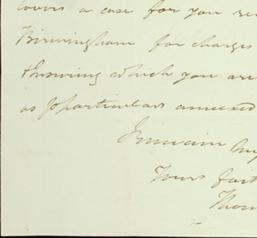 covers a case for you
Birmingham for charges
which you are
as particulars annexed
I remain
Yours
Thom